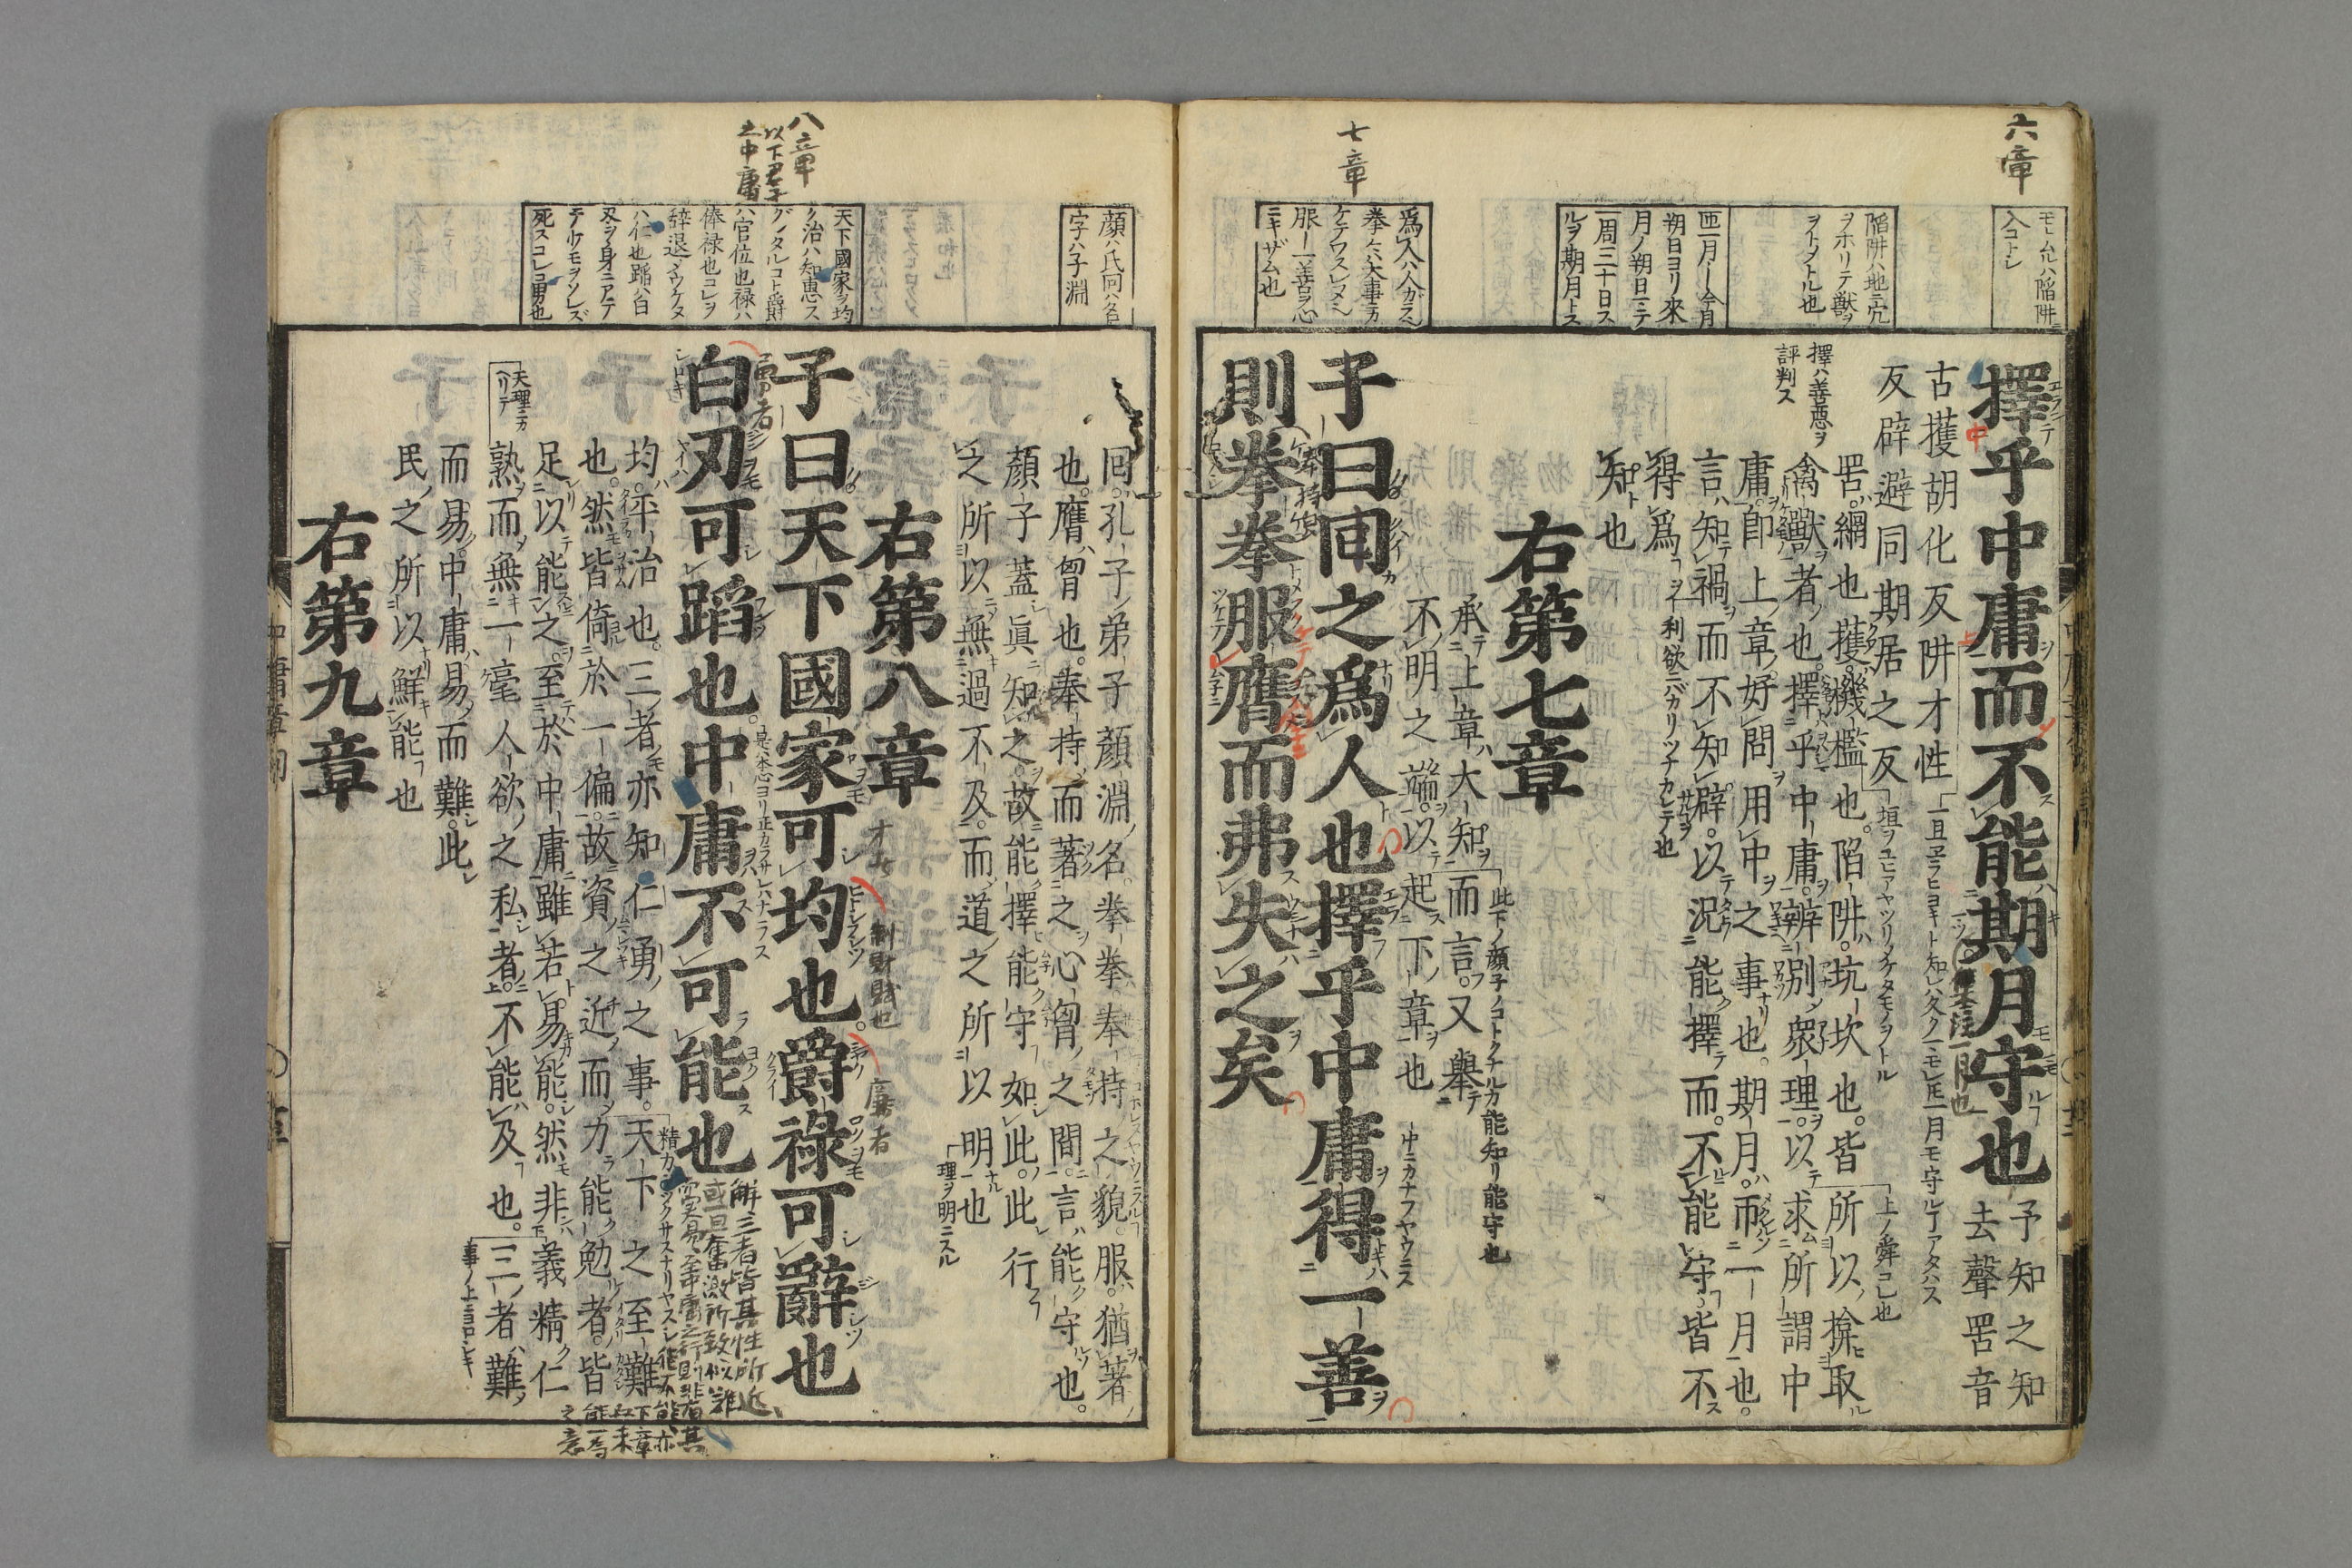 六章
七章
モトムルハ陥阱ニ
入コトシ
陥阱ハ地ニ穴
ヲホリテ獣ヲ
ヲトメトル也
匝一月ー今月
朔日ヨリ來
月ノ朔日ニテ
一周三十日ス
ルヲ期月トス
爲人ハ人ガラ也
服ー一善ヲ心
ニキザム也
擇乎中庸而不能期月守也
予知之知
去聲罟音
古擭胡化反阱才性
反辟避同期居之反
罟。網也。擭。機檻也。陷阱。坑坎也。皆所以揜取
禽獸者也。擇乎中庸。辨別衆理。以求所謂中
庸。卽上章好問用中之事也。期月。匝一月也。
言知禍而不知辟。以況能擇而不能守。皆不
得爲
知也
擇ハ善悪ヲ
評判ス
利欲ニバカリツナカレテ也
右第七章
承上章大知而言。又舉
不明之端。以起下章也
此下ノ顔子ノコトクナルカ能知リ能守也
中ニカナフヤウニス
子曰回之爲人也擇乎中庸得一善
則拳拳服膺而弗失之矣
八章
以下君子
之中庸
顔ハ氏回ハ名
字ハ子淵
天下國家ヲ均
ク治ハ知恵ス
グノタルコト爵
ハ官位也禄ハ
俸禄也コレヲ
辞退シウケタ
ハ仁也蹈ハ白
刄ヲ身ニアテ
テケモヲソレズ
死スコレコ勇也
回。孔子弟子顏淵名。拳拳。奉持之貌。服。猶著
也。膺。胷也。奉持而著之心胷之間。言能守也。
顏子蓋眞知之。故能擇能守如此。此行
之所以無過不及。而道之所以明也
理ヲ明ニスル
右第八章
子曰天下國家可均也爵祿可辭也
白刃可蹈也中庸不可能也
勇者
廉者
均。平治也。三者亦知仁勇之事。天下之至難
也。然皆倚於一偏。故資之近而力能勉者。皆
足以能之。至於中庸。雖若易能。然非義精仁
熟。而無一毫人欲之私者。不能及也。三者難
而易。中庸易而難。此
民之所以鮮能也
事ノ上ニヨロシキ
右第九章